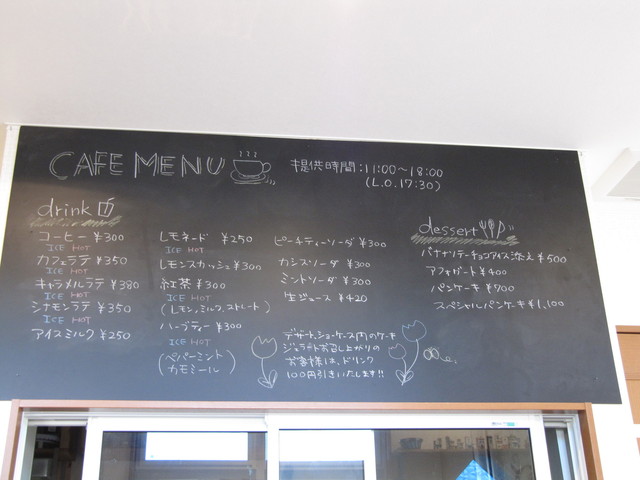 CAFE MENU
提供時間:11:00〜18:00
(L.O.17:30)
drink
コーヒー ¥300
ICE HOT
カフェラテ ¥350
ICE HOT
キャラメルラテ ¥380
ICE HOT
シナモンラテ ¥350
ICE HOT
アイスミルク ¥250
レモネード ¥250
ICE HOT
レモンスカッシュ ¥300
紅茶 ¥300
ICE HOT
(レモン,ミルク,ストレート)
ハーブティー ¥300
ICE HOT
(ペパーミント
カモミール)
ピーチティーソーダ ¥300
カシスソーダ ¥300
ミントソーダ ¥300
生ジュース ¥420
デザート,ショーケース内のケーキ
ジェラートお召し上がりの
お客様は、ドリンク
100円引きいたします!!
dessert
バナナソテーチョコアイス添え ¥500
アフォガート ¥400
パンケーキ ¥700
スペシャルパンケーキ ¥1,100